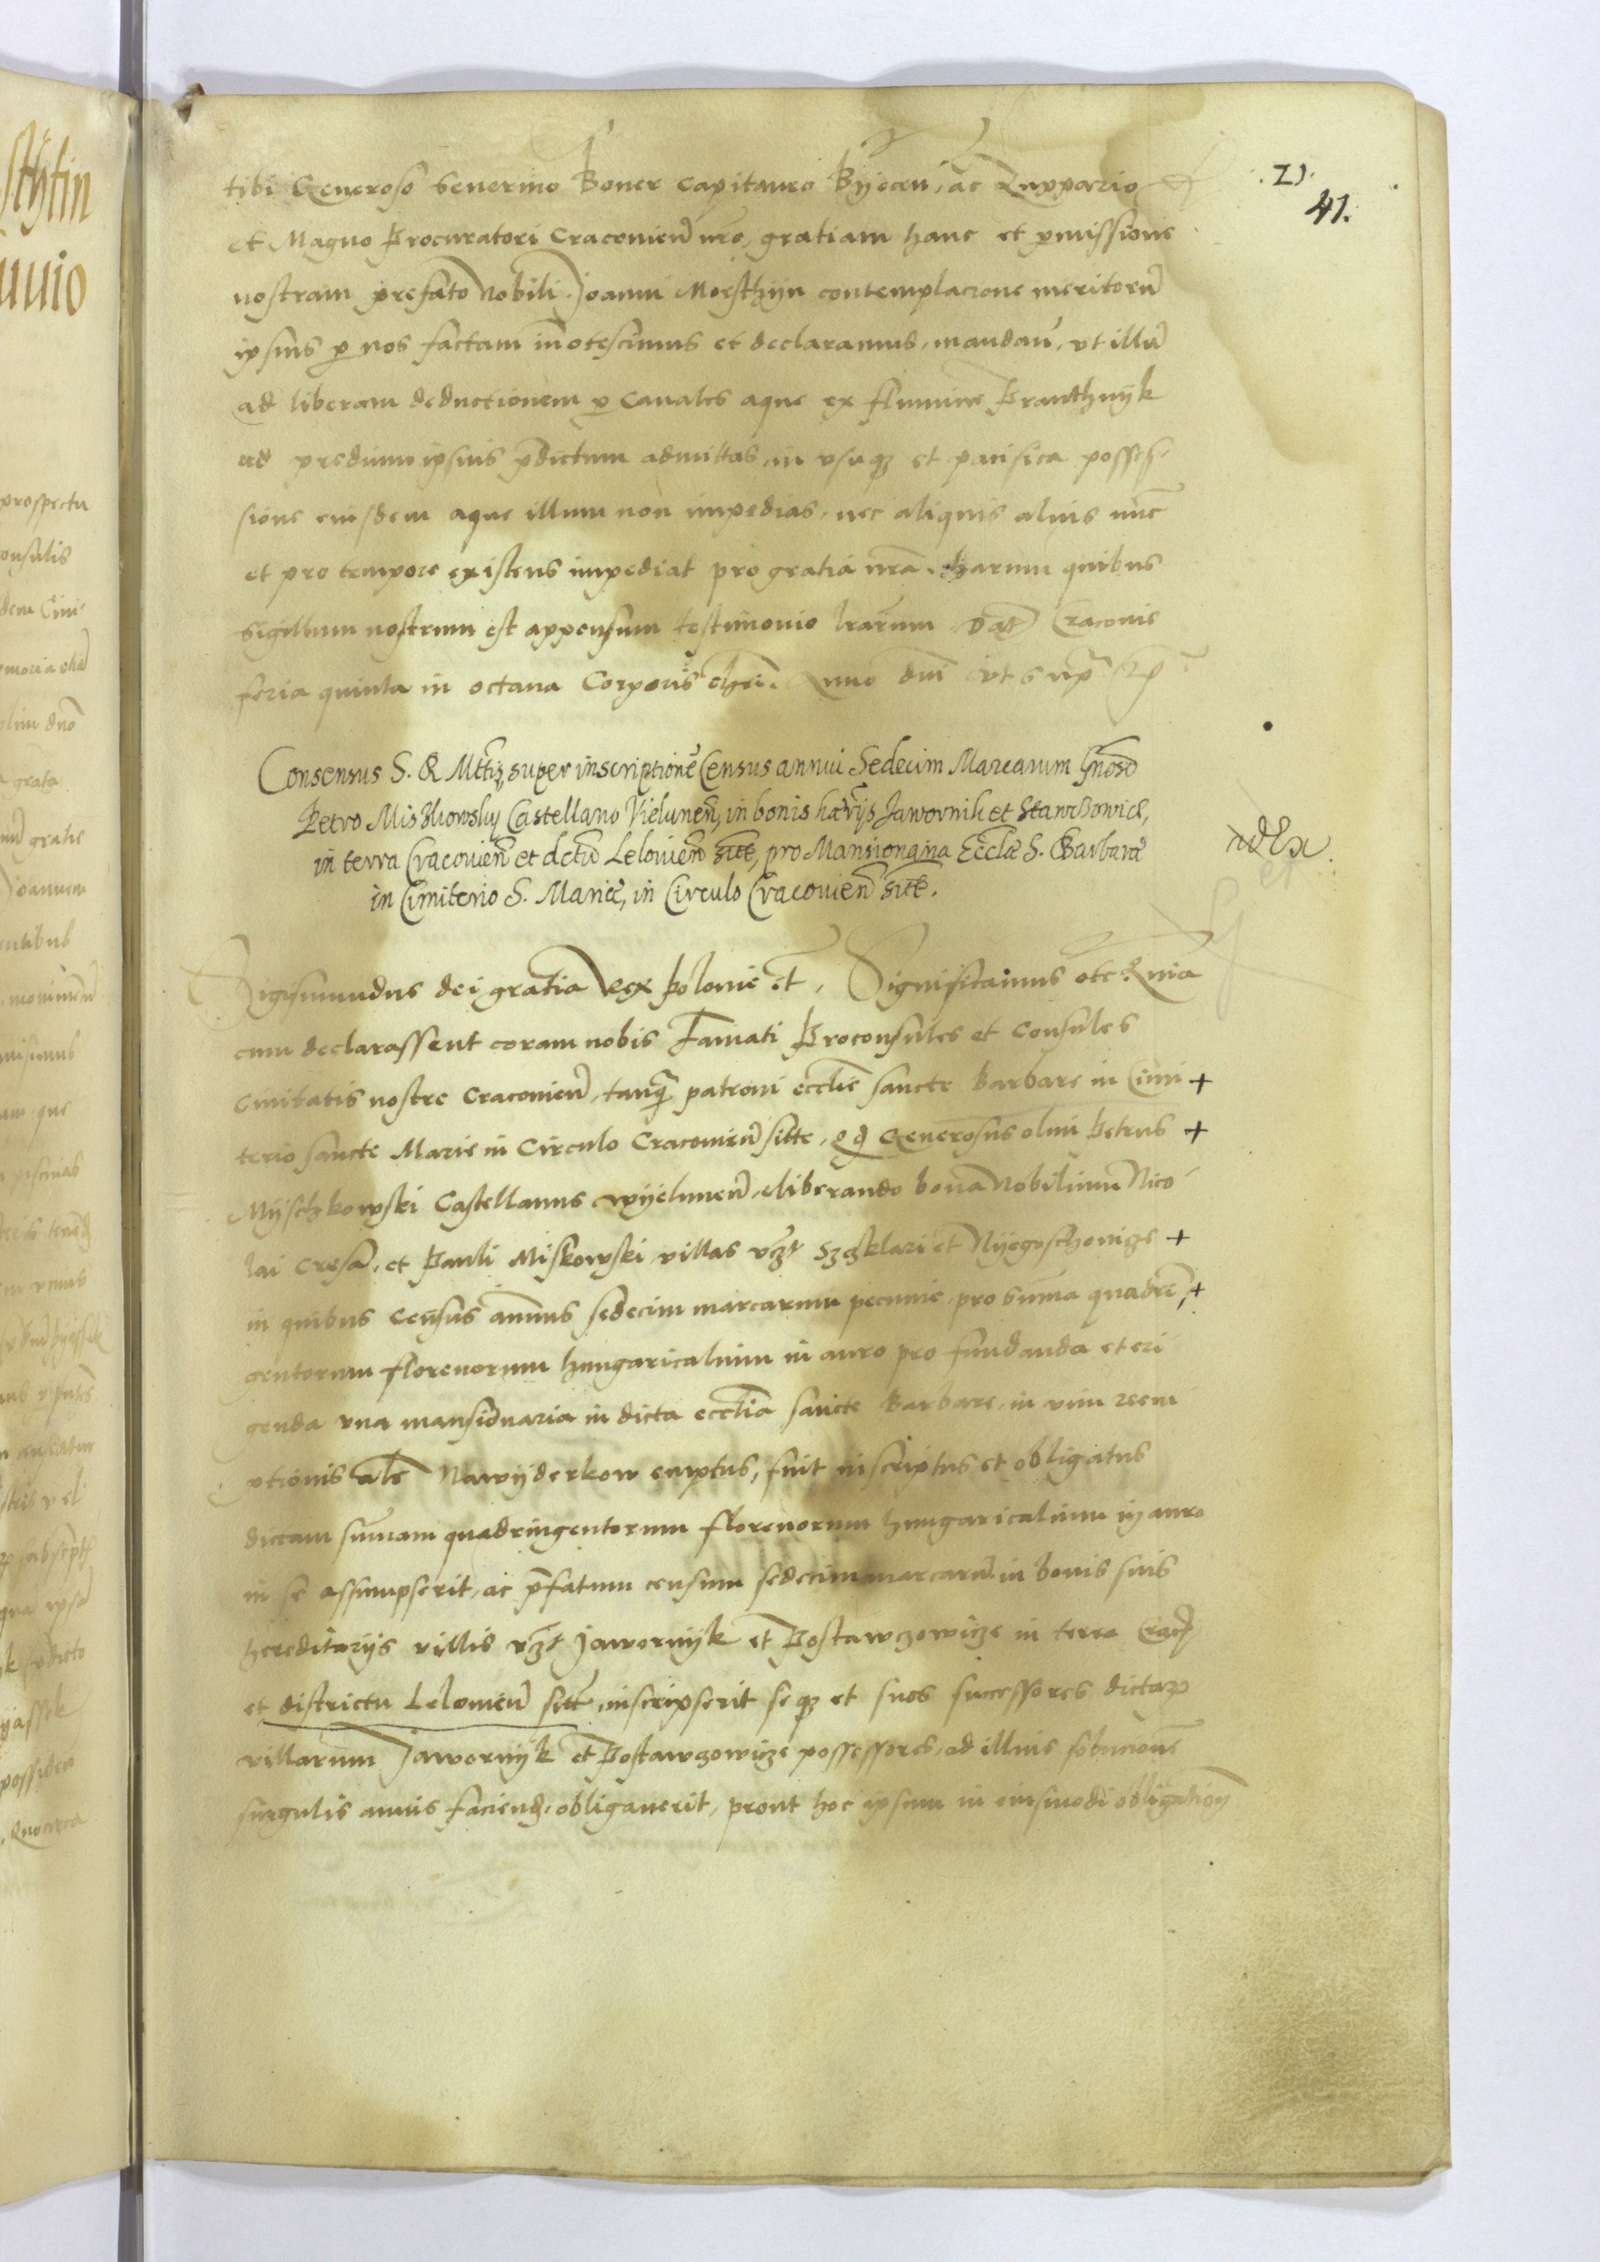 .21.
41.
tibi Generoso Severino Boner Capitaneo Byecen, ac Zuppario
et Magno Procuratori Cracovien nro, gratiam hanc et pmissione
nostram prefato Nobili Joanni Morsthyn contemplacione meritoru
ipsius p nos factam innotescimus et declaramus, mandan, ut illu
ad liberam deductionem p Canales aque ex flumine Pranthnyk
ad predium ipsius pdictum admittas, in usuq et pacifica posses-
sione eiusdem aque illum non impedias, nec aliquis alius nuc
et pro tempore existens impediat pro gratia nra. Harum quibus
Sigillum nostrum est appensum testimonio lrarum. Dat Cracovie
feria quinta in octava Corporis chri. Anno dni ut sup
Consensus S. R. Mttis, super inscriptione Census annui Sedecim Marcarum Gnoso
Petro Miszkowsky Castellano Vielunen, in bonis haerijs Jawornik et Stawczowice,
in terra Cracovien et dctu Lelovien sitt, pro Mansionaria Ecclae S. Barbarae
in Cimiterio S. Mariae, in Circulo Cracovien sitte.
Sigismundus dei gratia Rex Polonie et. Significamus etc. Quia
cum declarassent coram nobis Famati Proconsules et Consules
Civitatis nostre Cracovien, tanq patroni ecclie sancte Barbare in Cimi +
terio sancte Marie in Circulo Cracovien sitte, qd Generosus olim Petrus +
Myschkowski Castellanus Wyelunen, eliberando bona Nobilium Nico-
lai Cresa, et Pauli Miskowski villas vzt Szklari et Nyegoschovicze +
in quibus Census annuus sedecim marcarum pecunie pro summa quadrin +
gentorum florenorum hungaricalium in auro pro fundanda et eri
genda una mansionaria in dicta ecclia sancte Barbare, in vim reem
ptionis als Nawyderkow emptus, fuit inscriptus et obligatus
dictam summam quadringentorum florenorum hungaricalium in auro
in se assumpserit, ac pfatum censum sedecim marcaru in bonis suis
hereditarijs villis vzt Jawornyk et Postawczowicze in terra Crac
et districtu Lelovien sitt, inscripserit seq et suos successores dictar
villarum Jawornyk et Postawczowicze possessores, ad illius solucione
singulis annis faciend obligaverit, prout hoc ipsum in eiusmodi obligation